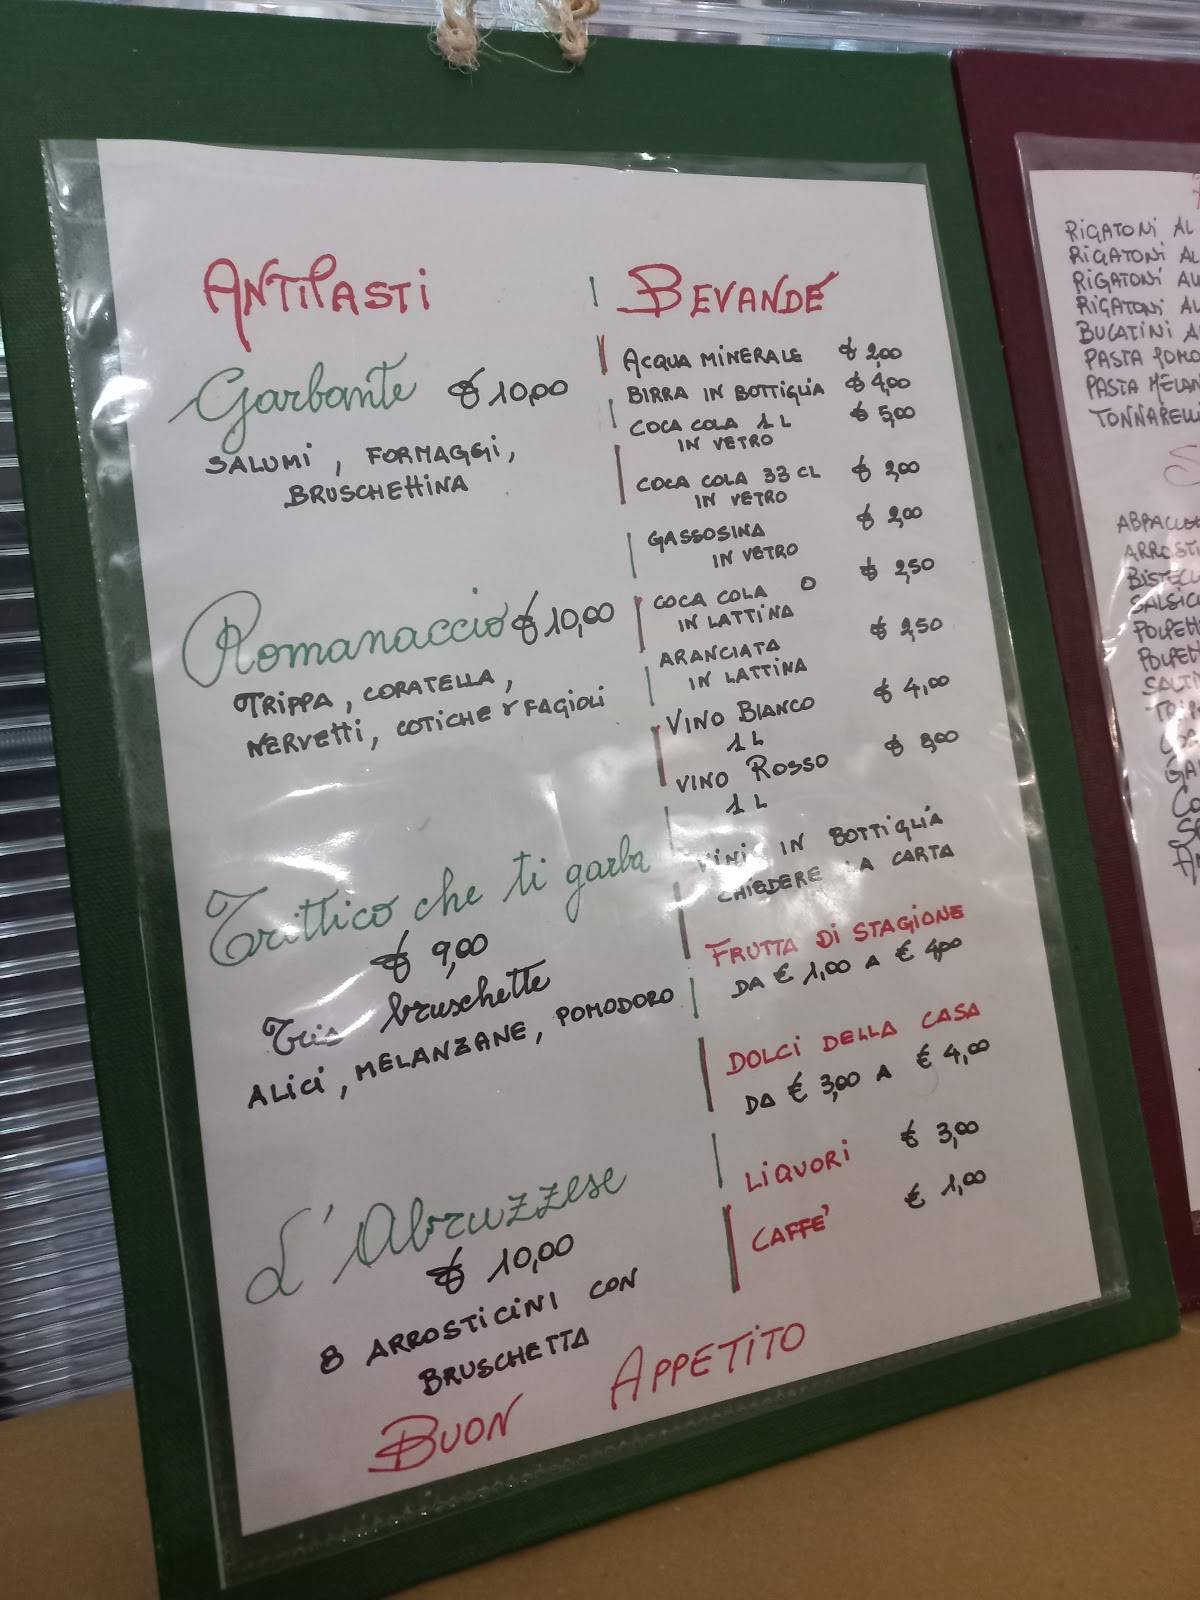 ANTIPASTI
Garbante € 10,00
SALUMI, FORMAGGI,
BRUSCHETTINA
Romanaccio € 10,00
TRIPPA, CORATELLA,
NERVETTI, COTICHE Y FAGIOLI
Trittico che ti garba
€ 9,00
Tris bruschette
ALICI, MELANZANE, POMODORO
L'Abruzzese
€ 10,00
8 ARROSTICINI CON
BRUSCHETTA
BEVANDE
ACQUA MINERALE € 2,00
BIRRA IN BOTTIGLIA € 4,00
COCA COLA 1 L € 5,00
IN VETRO
COCA COLA 33 CL € 2,00
IN VETRO
GASSOSINA € 2,00
IN VETRO
COCA COLA O € 2,50
IN LATTINA
ARANCIATA € 2,50
IN LATTINA
VINO BIANCO € 4,00
1 L
VINO ROSSO €
1 L
VINI IN BOTTIGLIA
CHIEDERE LA CARTA
FRUTTA DI STAGIONE
DA € 1,00 A € 4,00
DOLCI DELLA CASA
DA € 3,00 A € 4,00
LIQUORI € 3,00
CAFFE' € 1,00
BUON APPETITO
RIGATONI AL
RIGATONI
RIGATONI
RIGATONI
BUCATINI
PASTA
PASTA